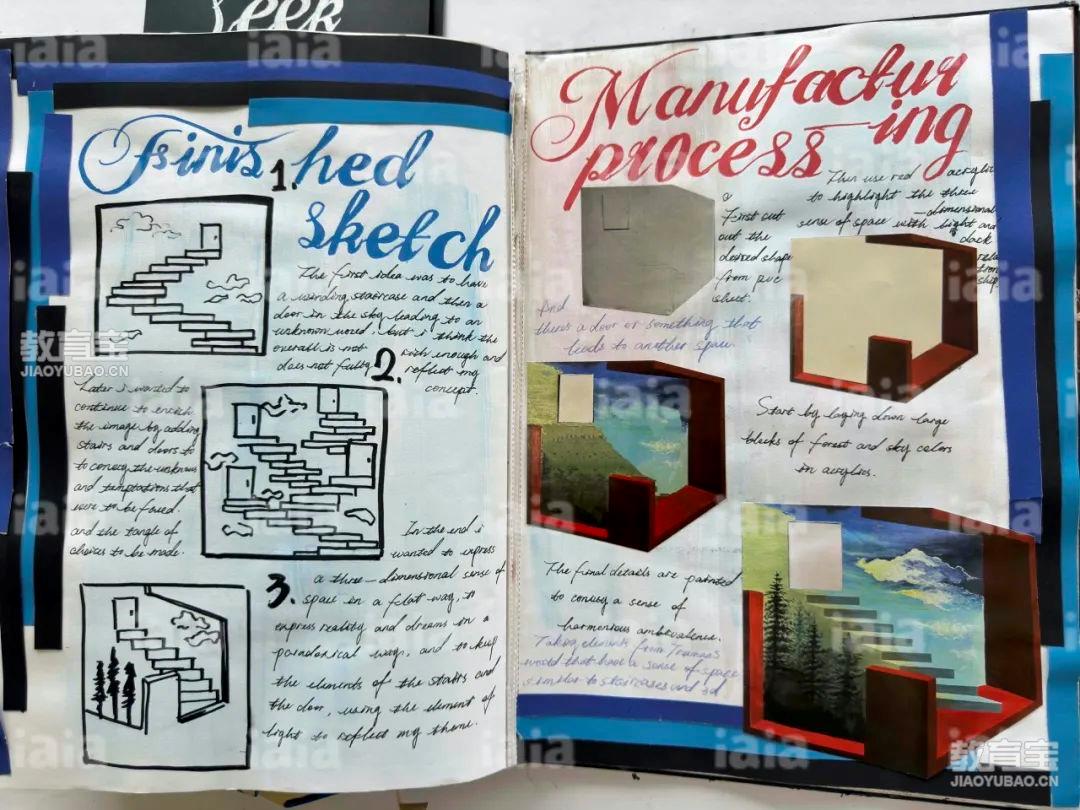 Seek
Finis hed
sketch
1.
The first idea was to have
a winding staircase and then a
door in the sky leading to an
unknown word. but i think the
overall is not rich enough and
does not fully reflect my
concept.
2.
Later i wanted to
continue to enrich
the image by adding
stairs and doors to
to convey the unknown
and temptations that
were to be faced.
and the tangle of
choices to be made.
3.
In the end i
wanted to express
a three-dimensional sense of
space in a flat way, to
express reality and dreams in a
paradoxical way, and to keep
the elements of the stairs and
the door, using the element of
light to reflect my theme.
Manufactur
ing
process
First cut
out the
desired shape
from pvc
sheet.
Then use red acrylic
to highlight the three
-dimensional
sense of space with light and
dark
rela
tion
ship
And
there's a door or something that
leads to another space
Start by laying down large
blocks of forest and sky colors
in acrylics.
The final details are painted
to convey a sense of
harmonious ambivalence.
Taking elements from
world that have a sense of space
similar to staircases and
iaia
教育宝
JIAOYUBAO.CN
教育宝
JIAOYUBAO.CN